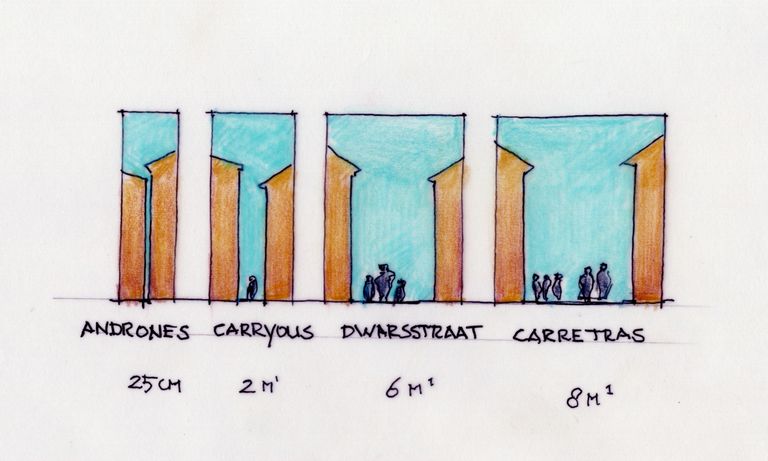 ANDRONES CARRYOUS DWARSSTRAAT CARRETRAS
25CM 2 M¹ 6 M¹ 8 M¹